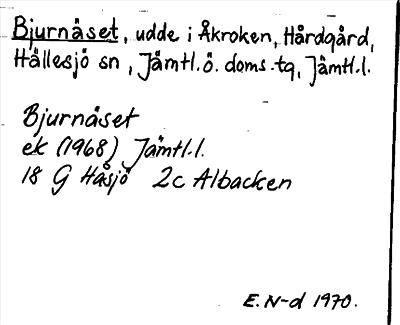 Bjurnäset, udde i Åkroken, Hårdgård,
Hällesjö sn, Jämtl.ö. doms.tg, Jämtl.l.
Bjurnäset
ek (1968) Jämtl.l.
18 G Håsjö 2c Albacken
E. N-d 1970.